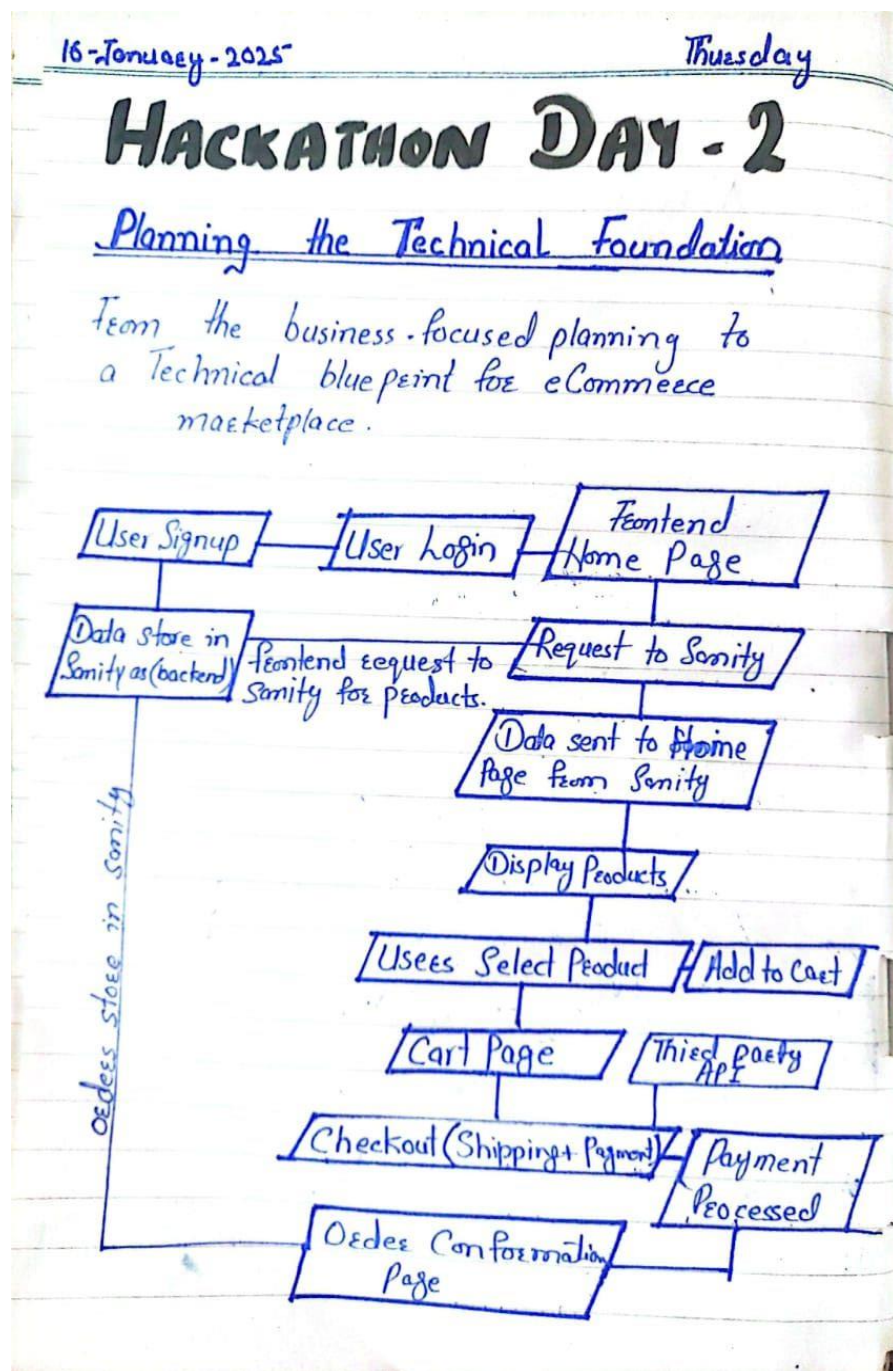 16-January-2025
Thursday
HACKATHON DAY - 2
Planning the Technical Foundation
From the business-focused planning to
a Technical blueprint for eCommerce
marketplace.
User Signup
User Login
Frontend
Home Page
Data store in
Sanity as (backend)
frontend request to
Sanity for products.
Request to Sanity
Data sent to Home
Page from Sanity
Display Products
Users Select Product
Add to Cart
Cart Page
Third party
API
Checkout (Shipping + Payment)
Payment
Processed
Order Conformation
Page
Orders store in Sanity